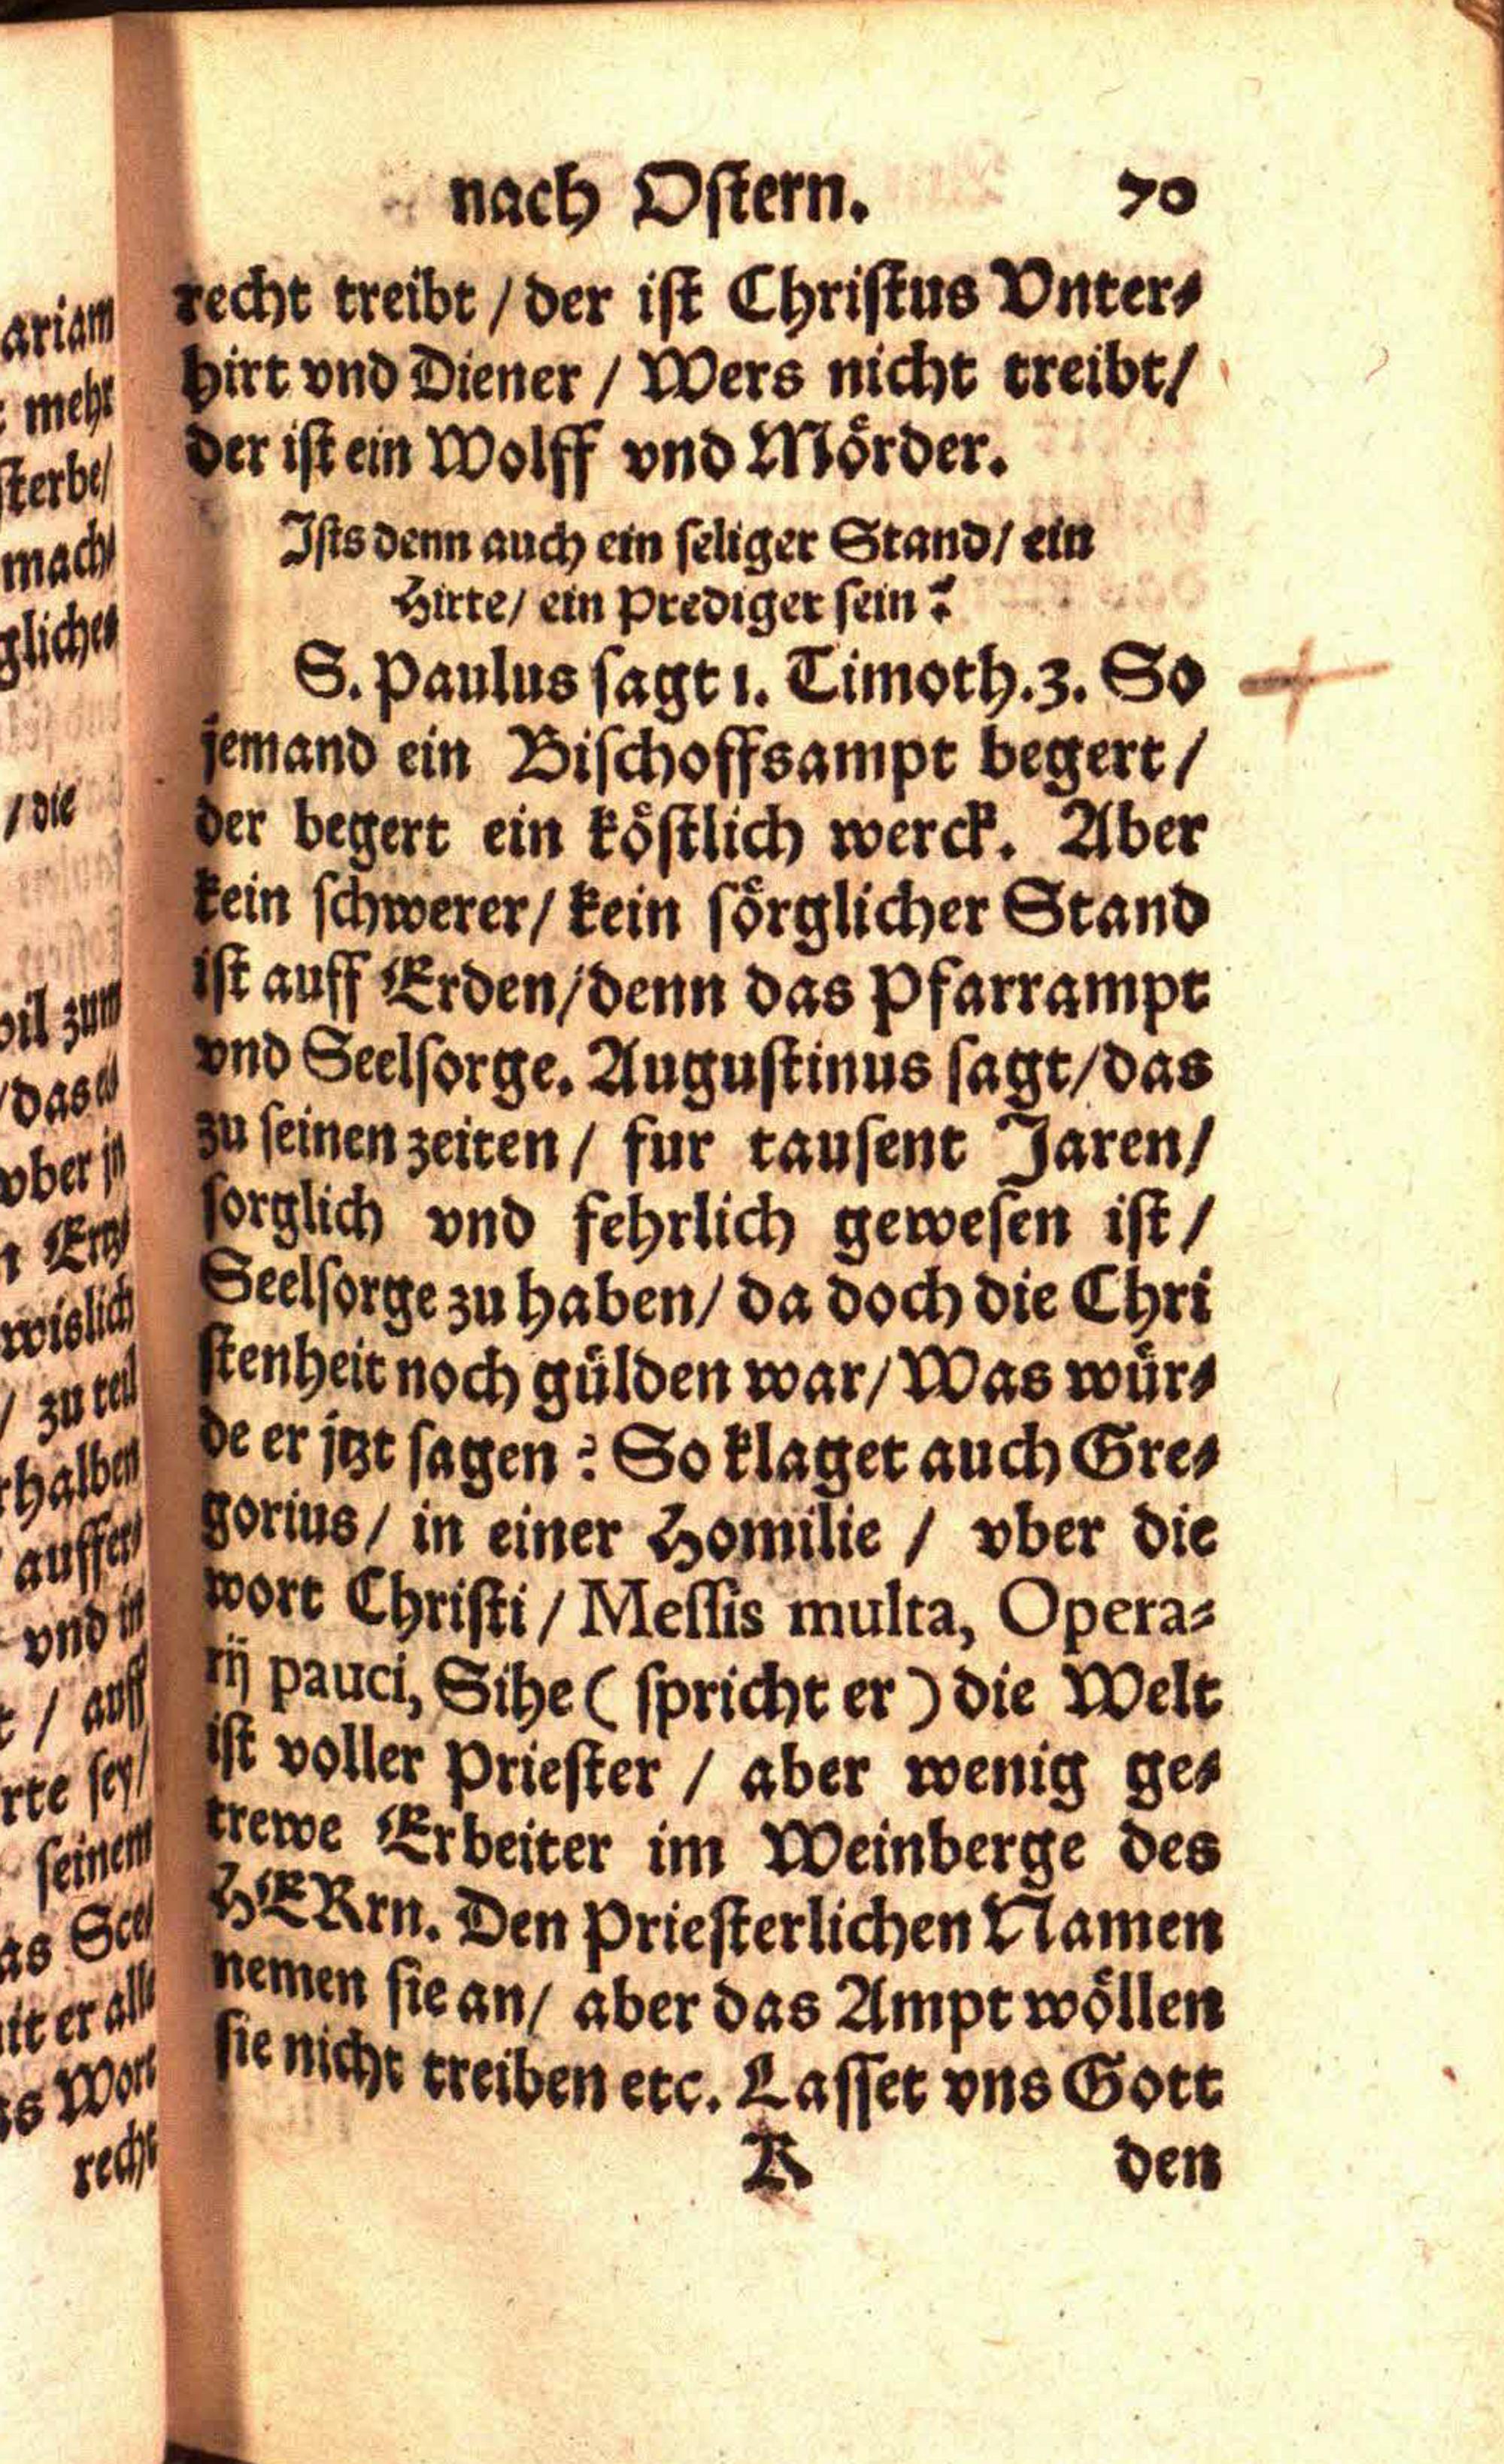 nach Oſtern. 70
recht treibt / der iſt Chriſtus Vnter⸗
hirt vnd Diener / Wers nicht treibt /
der iſt ein Wolff vnd Mörder.
Iſts denn auch ein ſeliger Stand / ein
Hirte / ein Prediger ſein?
S. Paulus ſagt 1. Timoth. 3. So
jemand ein Biſchoffsampt begert /
der begert ein köſtlich werck. Aber
kein ſchwerer / kein ſörglicher Stand
iſt auff Erden / denn das Pfarrampt
vnd Seelſorge. Auguſtinus ſagt / das
zu ſeinen zeiten / fur tauſent Jaren /
ſorglich vnd fehrlich geweſen iſt /
Seelſorge zu haben / da doch die Chri
ſtenheit noch gülden war / Was wür⸗
de er jtzt ſagen? So klaget auch Gre⸗
gorius / in einer Homilie / vber die
wort Chriſti / Meſſis multa, Opera⸗
rij pauci, Sihe ( ſpricht er ) die Welt
iſt voller Prieſter / aber wenig ge⸗
trewe Erbeiter im Weinberge des
HERrn. Den Prieſterlichen Namen
nemen ſie an / aber das Ampt wöllen
ſie nicht treiben etc. Laſſet vns Gott
K den